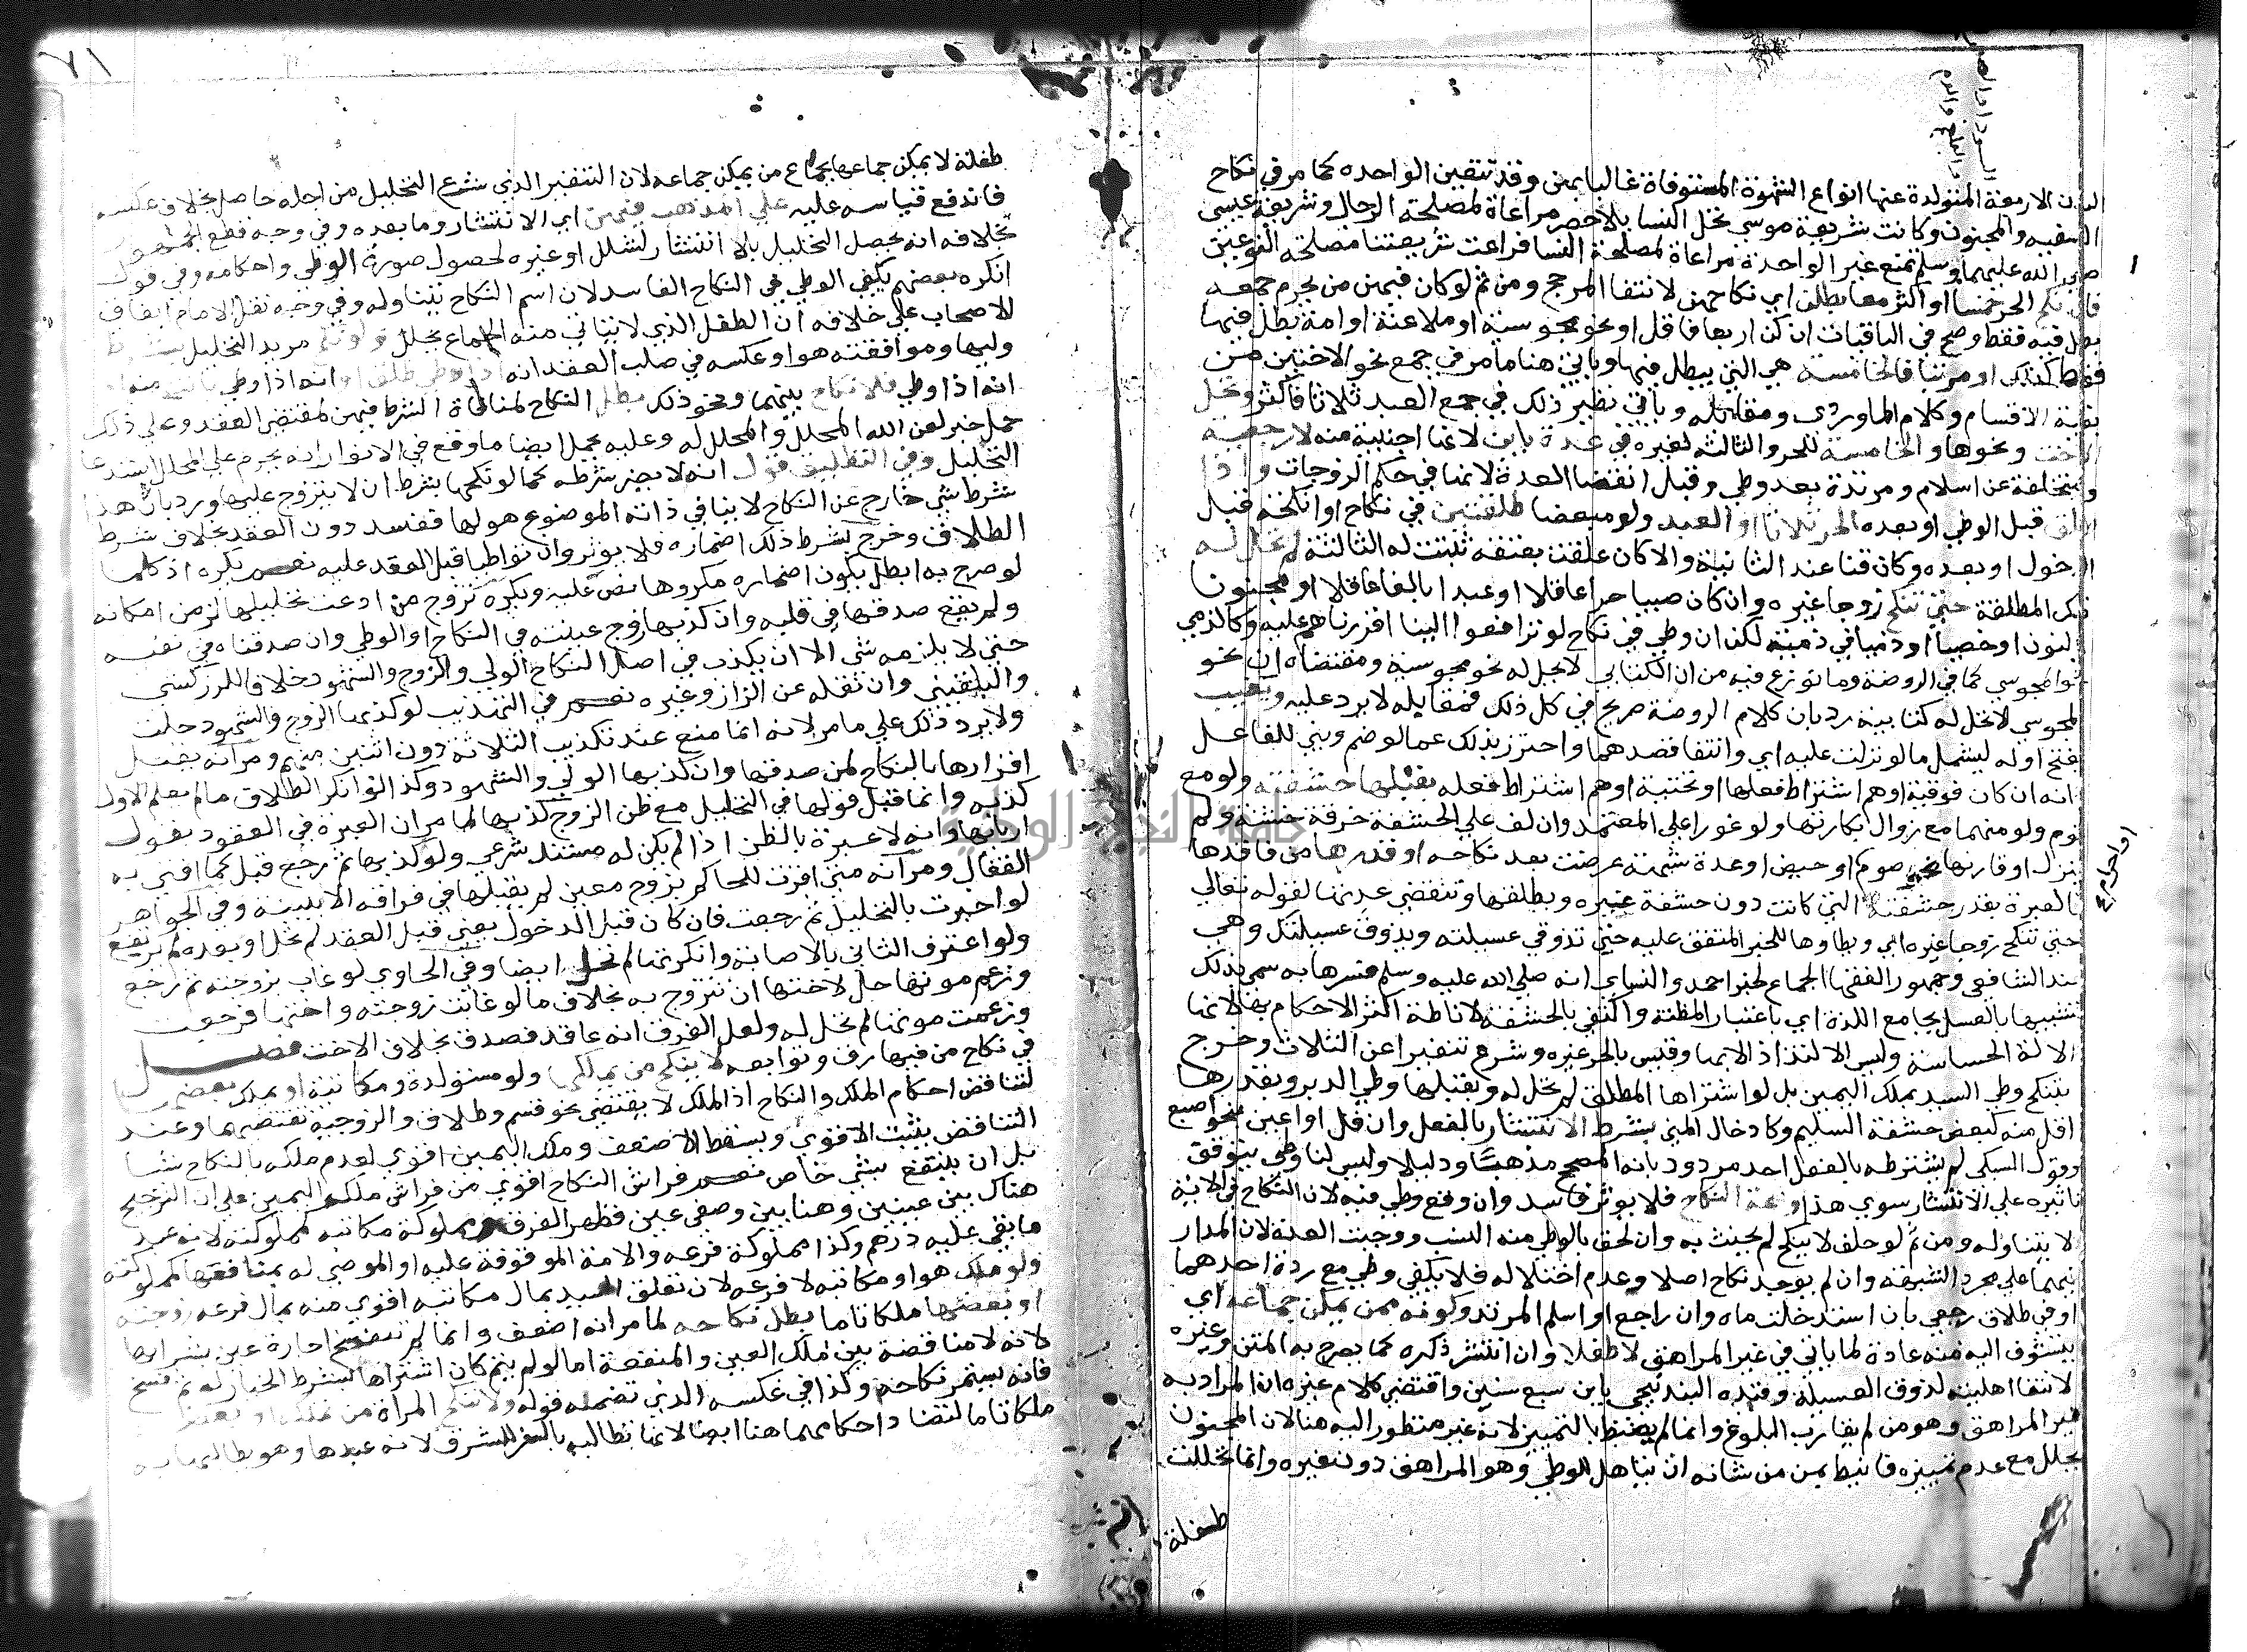 السودا والصفرا
والبلغم والدم
البدن الاربعة المتولدة عنها انواع الشهوة المستوفاة غالبا بهن وقد تتعين الواحده كما مر في نكاح
السفيه والمجنون وكانت شريعة موسى تحل النسا بلا حصر مراعاة لمصلحة الرجال وشريعة عيسى
صلى الله عليهما وسلم تمنع غير الواحدة مراعاة لمصلحة النسا فراعت شريعتنا مصلحة النوعين
فان نكح الحر خمسا او اكثر معا بطلن اي نكاحهن لانتفا المرجح ومن ثم لو كان فيهن من يحرم جمعه
بطل فيه فقط وصح في الباقيات ان كن اربعا فاقل او نحو مجوسية او ملاعنة او امة بطل فيها
فقط كذلك او مرتبا فالخامسة هي التي يبطل فيها وياتي هنا ما مر في جمع نحو الاختين من
بقية الاقسام وكلام الماوردي ومقابله وياتي نظير ذلك في جمع العبد ثلاثا فاكثر وتحل
الاخت ونحوها والخامسة للحر والثالثة لغيره في عدة باين لانها اجنبية منه لا رجعية
ومتخلفة عن اسلام ومرتدة بعد وطي وقبل انقضا العدة لانها في حكم الزوجات واذا
طلق قبل الوطي او بعده الحر ثلاثا او العبد ولو مبعضا طلقتين في نكاح او انكحة قبل
الدخول او بعده وكان قنا عند الثانية والا كان علقت بعتقه ثبتت له الثالثة لم تحل له
تلك المطلقة حتى تنكح زوجا غيره وان كان صبيا حرا عاقلا او عبدا بالغا عاقلا او مجنونا
بالنون او خصيا او ذميا في ذمية لكن ان وطي في نكاح لو ترافعوا الينا اقررناهم عليه وكالذمي
نحو المجوسي كما في الروضة وما نوزع فيه من ان الكتابي لا يحل له نحو مجوسية ومقتضاه ان نحو
المجوسي لا تحل له كتابية رد بان كلام الروضة صريح في كل ذلك فمقابله لا يرد عليه وتغيب
بفتح اوله ليشمل ما لو نزلت عليه اي وانتفا قصدهما واحترز بذلك عما لو ضم وبني للفاعل
انه ان كان فوقية اوهم اشتراط فعلها او تحتية اوهم اشتراط فعله بقبلها حشفته ولو مع
نوم ولو منهما مع زوال بكارتها ولو غورا على المعتمد وان لف على الحشفة خرقة خشنة ولم
ينزل او قارنها نحو صوم او حيض او عدة شبهة عرضت بعد نكاحه او قدرها من فاقدها
او احرام صح
فالعبرة بقدر حشفته التي كانت دون حشفة غيره ويطلقها وتنقضي عدتها لقوله تعالى
حتى تنكح زوجا غيره اي ويطاوها للخبر المتفق عليه حتى تذوقي عسيلته ويذوق عسيلتك وهي
عند الشافعي وجمهور الفقها الجماع لخبر احمد والنساي انه صلى الله عليه وسلم فسرها به سمي بذلك
تشبيها بالعسل بجامع اللذة اي باعتبار المظنة واكتفي بالحشفة لاناطة اكثر الاحكام بها لانها
الالة الحساسة وليس الالتذاذ الا بها وقيس بالحر غيره وشرع تنفيرا عن الثلاث وخرج
بتنكح وطي السيد بملك اليمين بل لو اشتراها المطلق لم تحل له وبقبلها وطي الدبر وبقدرها
اقل منه كبعض حشفة السليم وكادخال المني بشرط الانتشار بالفعل وان قل او اعين بنحو اصبع
وقول السبكي لم يشترطه بالفعل احد مردود بانه الصحيح مذهبا ودليلا وليس لنا وطي يتوقف
تاثيره على الانتشار سوى هذا وصحة النكاح فلا يوثر فاسد وان وقع وطي فيه لان النكاح في الاية
لا يتناوله ومن ثم لو حلف لا ينكح لم يحنث به وان لحق بالوطي منه النسب ووجبت العدة لان المدار
فيهما على مجرد الشبهة وان لم يوجد نكاح اصلا وعدم اختلاله فلا يكفي وطي مع ردة احدهما
او في طلاق رجعي بان استدخلت ماه وان راجع او اسلم المرتد وكونه ممن يمكن جماعه اي
يتشوف اليه منه عادة لما ياتي في غير المراهق لا طفلا وان انتشر ذكره كما يصرح به المتن وغيره
لانتفا اهليته لذوق العسيلة وقيده البندنيجي بابن سبع سنين واقتضى كلام غيره ان المراد به
غير المراهق وهو من لم يقارب البلوغ وانما لم يضبط بالتمييز لانه غير منظور اليه هنا لان المجنون
يحلل مع عدم تمييزه فانيط بمن من شانه ان يتاهل للوطي وهو المراهق دون غيره وانما تحللت
طفلة
٧١
طفلة لا يمكن جماعها بجماع من يمكن جماعه لان التنفير الذي شرع التحليل من اجله حاصل بخلاف عكسه
فاندفع قياسه عليه على المذهب فيهن اي الانتشار وما بعده وفي وجه قطع الجمهور
بخلافه انه يحصل التحليل بلا انتشار لشلل او غيره لحصول صورة الوطي واحكامه وفي قول
انكره بعضهم يكفي الوطي في النكاح الفاسد لان اسم النكاح يتناوله وفي وجه نقل الامام اتفاق
الاصحاب على خلافه ان الطفل الذي لا يتاتى منه الجماع يحلل ولو نكح مريد التحليل بشرط
وليها وموافقته هو او عكسه في صلب العقد انه اذا وطي طلق او انه اذا وطي بانت منه او
انه اذا وطي فلا نكاح بينهما ونحو ذلك بطل النكاح لمنافاة الشرط فيهن لمقتضى العقد وعلى ذلك
حمل خبر لعن الله المحلل والمحلل له وعليه يحمل ايضا ما وقع في الانوار انه يحرم على المحلل استدعا
التحليل وفي التطليق قول انه لا يضر شرطه كما لو نكحها بشرط ان لا يتزوج عليها ورد بان هذا
شرط شي خارج عن النكاح لا ينافي ذاته الموضوع هو لها ففسد دون العقد بخلاف شرط
الطلاق وخرج بشرط ذلك اضماره فلا يوثر وان تواطيا قبل العقد عليه نعم يكره اذ كلما
لو صرح به ابطل يكون اضماره مكروها نص عليه ويكره تزوج من ادعت تحليلها لزمن امكانه
ولم يقع صدقها في قلبه وان كذبها زوج عينته في النكاح او الوطي وان صدقناه في نفيه
حتى لا يلزمه شي الا ان يكذب في اصل النكاح الولي والزوج والشهود خلافا للزركشي
والبلقيني وان نقله عن الزاز وغيره نعم في التهذيب لو كذبها الزوج والشهود حلت
ولا يرد ذلك على ما مر لانه انما منع عند تكذيب الثلاثة دون اثنين منهم ومر انه يقبل
اقرارها بالنكاح لمن صدقها وان كذبها الولي والشهود وكذا لو انكر الطلاق ما لم يعلم الاول
كذبه وانما قبل قولها في التحليل مع ظن الزوج كذبها لما مر ان العبرة في العقود بقول
اربابها وانه لا عبرة بالظن اذا لم يكن له مستند شرعي ولو كذبها ثم رجع قبل كما افتى به
القفال ومر انه متى اقرت للحاكم بزوج معين لم يقبلها في فراقه الا ببينة وفي الجواهر
لو اخبرت بالتحليل ثم رجعت فان كان قبل الدخول يعني قبل العقد لم تحل او بعده لم يرتفع
ولو اعترف الثاني بالاصابة وانكرتها لم تحل ايضا وفي الحاوي لو غاب بزوجته ثم رجع
وزعم موتها حل لاختها ان تتزوج به بخلاف ما لو غابت زوجته واختها فرجعت
وزعمت موتها لم تحل له ولعل الفرق انه عاقد فصدق بخلاف الاخت فصل
في نكاح من فيها رق وتوابعه لا ينكح من يملكها ولو مستولدة ومكاتبة او يملك بعضها
لتناقض احكام الملك والنكاح اذ الملك لا يقتضي نحو قسم وطلاق والزوجية تقتضيهما وعند
التناقض يثبت الاقوى ويسقط الاضعف وملك اليمين اقوى لعدم ملكه بالنكاح شيا
بل ان ينتفع بشي خاص نعم فراش النكاح اقوى من فراش ملك اليمين على ان الترجيح
هناك بين عينين وهنا بين وصفي عين فظهر الفرق ومملوكة مكاتبه كمملوكته لانه عبد
ما بقي عليه درهم وكذا مملوكة فرعه والامة الموقوفة عليه او الموصى له بمنافعها كمملوكته
ولو ملك هو او مكاتبه لا فرعه لان تعلق السيد بمال مكاتبه اقوى منه بمال فرعه زوجته
او بعضها ملكا تاما بطل نكاحه لما مر انه اضعف وانما لم تنفسخ اجارة عين بشرايها
لانه لا مناقضة بين ملك العين والمنفعة اما لو لم يتم كان اشتراها بشرط الخيار له ثم فسخ
فانه يستمر نكاحه وكذا في عكسه الذي تضمنه قوله ولا تنكح المراة من تملكه او بعضه
ملكا تاما لتضاد احكامهما هنا ايضا لانها تطالبه بالسفر للشرق لانه عبدها وهو يطالبها به
جامعة النجاح الوطنية